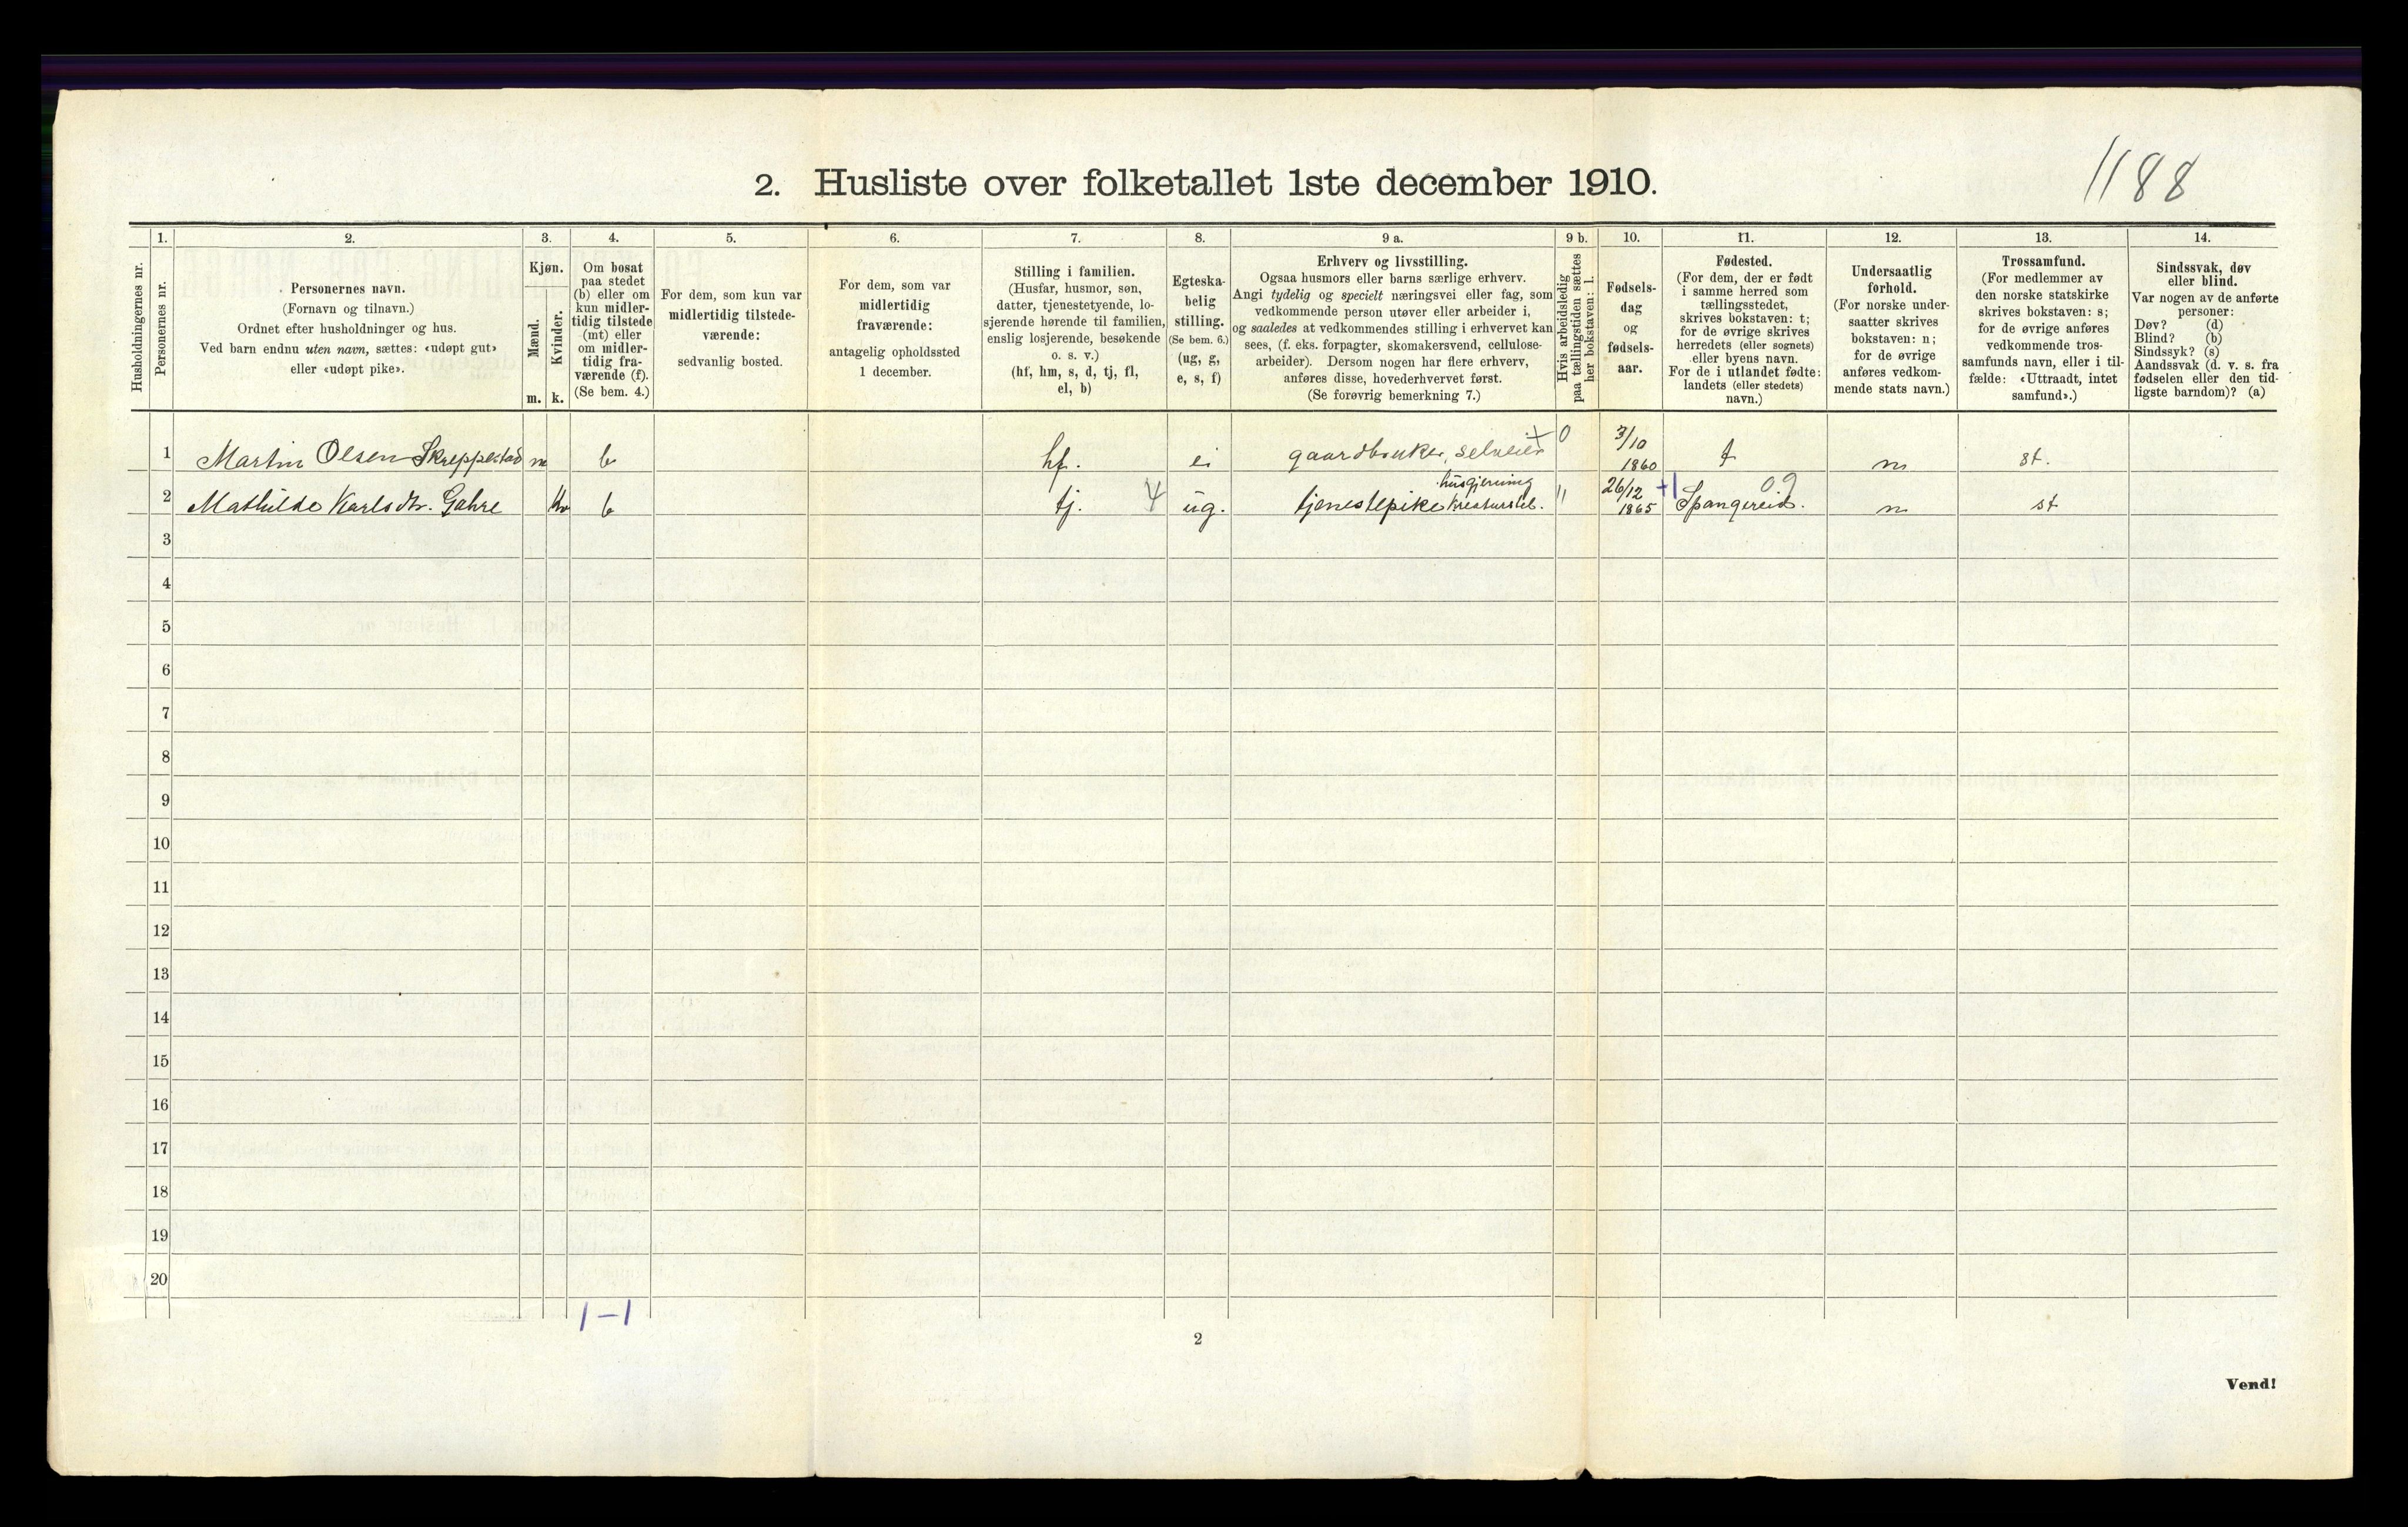 1188
2. Husliste over folketallet 1ste december 1910.
Husholdningernes nr.
1.
Personernes nr.
2.
Personernes navn.
(Fornavn og tilnavn.)
Ordnet efter husholdninger og hus.
Ved barn endnu uten navn, sættes: «udøpt gut»
eller «udøpt pike».
3.
Kjøn.
Mænd.
Kvinder.
m. k.
4.
Om bosat
paa stedet
(b) eller om
kun midler-
tidig tilstede
(mt) eller
om midler-
tidig fra-
værende (f).
(Se bem. 4.)
5.
For dem, som kun var
midlertidig tilstede-
værende:
sedvanlig bosted.
6.
For dem, som var
midlertidig
fraværende:
antagelig opholdssted
1 december.
7.
Stilling i familien.
(Husfar, husmor, søn,
datter, tjenestetyende, lo-
sjerende hørende til familien,
enslig losjerende, besøkende
o. s. v.)
(hf, hm, s, d, tj, fl,
el, b)
8.
Egteska-
belig
stilling.
(Se bem. 6.)
(ug, g,
e, s, f)
9 a.
Erhverv og livsstilling.
Ogsaa husmors eller barns særlige erhverv.
Angi tydelig og specielt næringsvei eller fag, som
vedkommende person utøver eller arbeider i,
og saaledes at vedkommendes stilling i erhvervet kan
sees, (f. eks. forpagter, skomakersvend, cellulose-
arbeider). Dersom nogen har flere erhverv,
anføres disse, hovederhvervet først.
(Se forøvrig bemerkning 7.)
9 b.
Hvis arbeidsledig
paa tællingstiden sættes
her bokstaven: l.
10.
Fødsels-
dag
og
fødsels-
aar.
11.
Fødested.
(For dem, der er født
i samme herred som
tællingsstedet,
skrives bokstaven: t;
for de øvrige skrives
herredets (eller sognets)
eller byens navn.
For de i utlandet fødte:
landets (eller stedets)
navn.)
12.
Undersaatlig
forhold.
(For norske under-
saatter skrives
bokstaven: n;
for de øvrige
anføres vedkom-
mende stats navn.)
13.
Trossamfund.
(For medlemmer av
den norske statskirke
skrives bokstaven: s;
for de øvrige anføres
vedkommende tros-
samfunds navn, eller i til-
fælde: «Uttraadt, intet
samfund».)
14.
Sindssvak, døv
eller blind.
Var nogen av de anførte
personer:
Døv? (d)
Blind? (b)
Sindssyk? (s)
Aandssvak (d. v. s. fra
fødselen eller den tid-
ligste barndom)? (a)
1 Martin Olsen Skreppestad m b hf. ei gaardbruker, selveier + 0 3/10 1860 t n st.
2 Mathilde Karlsdtr. Gahre kv b tj. 4 ug. tjenestepike husgjerning Kreaturstel. " 26/12 1865 +1 Spangereid. 09 n st
3
4
5
6
7
8
9
10
11
12
13
14
15
16
17
18
19
20
1-1
2
Vend!